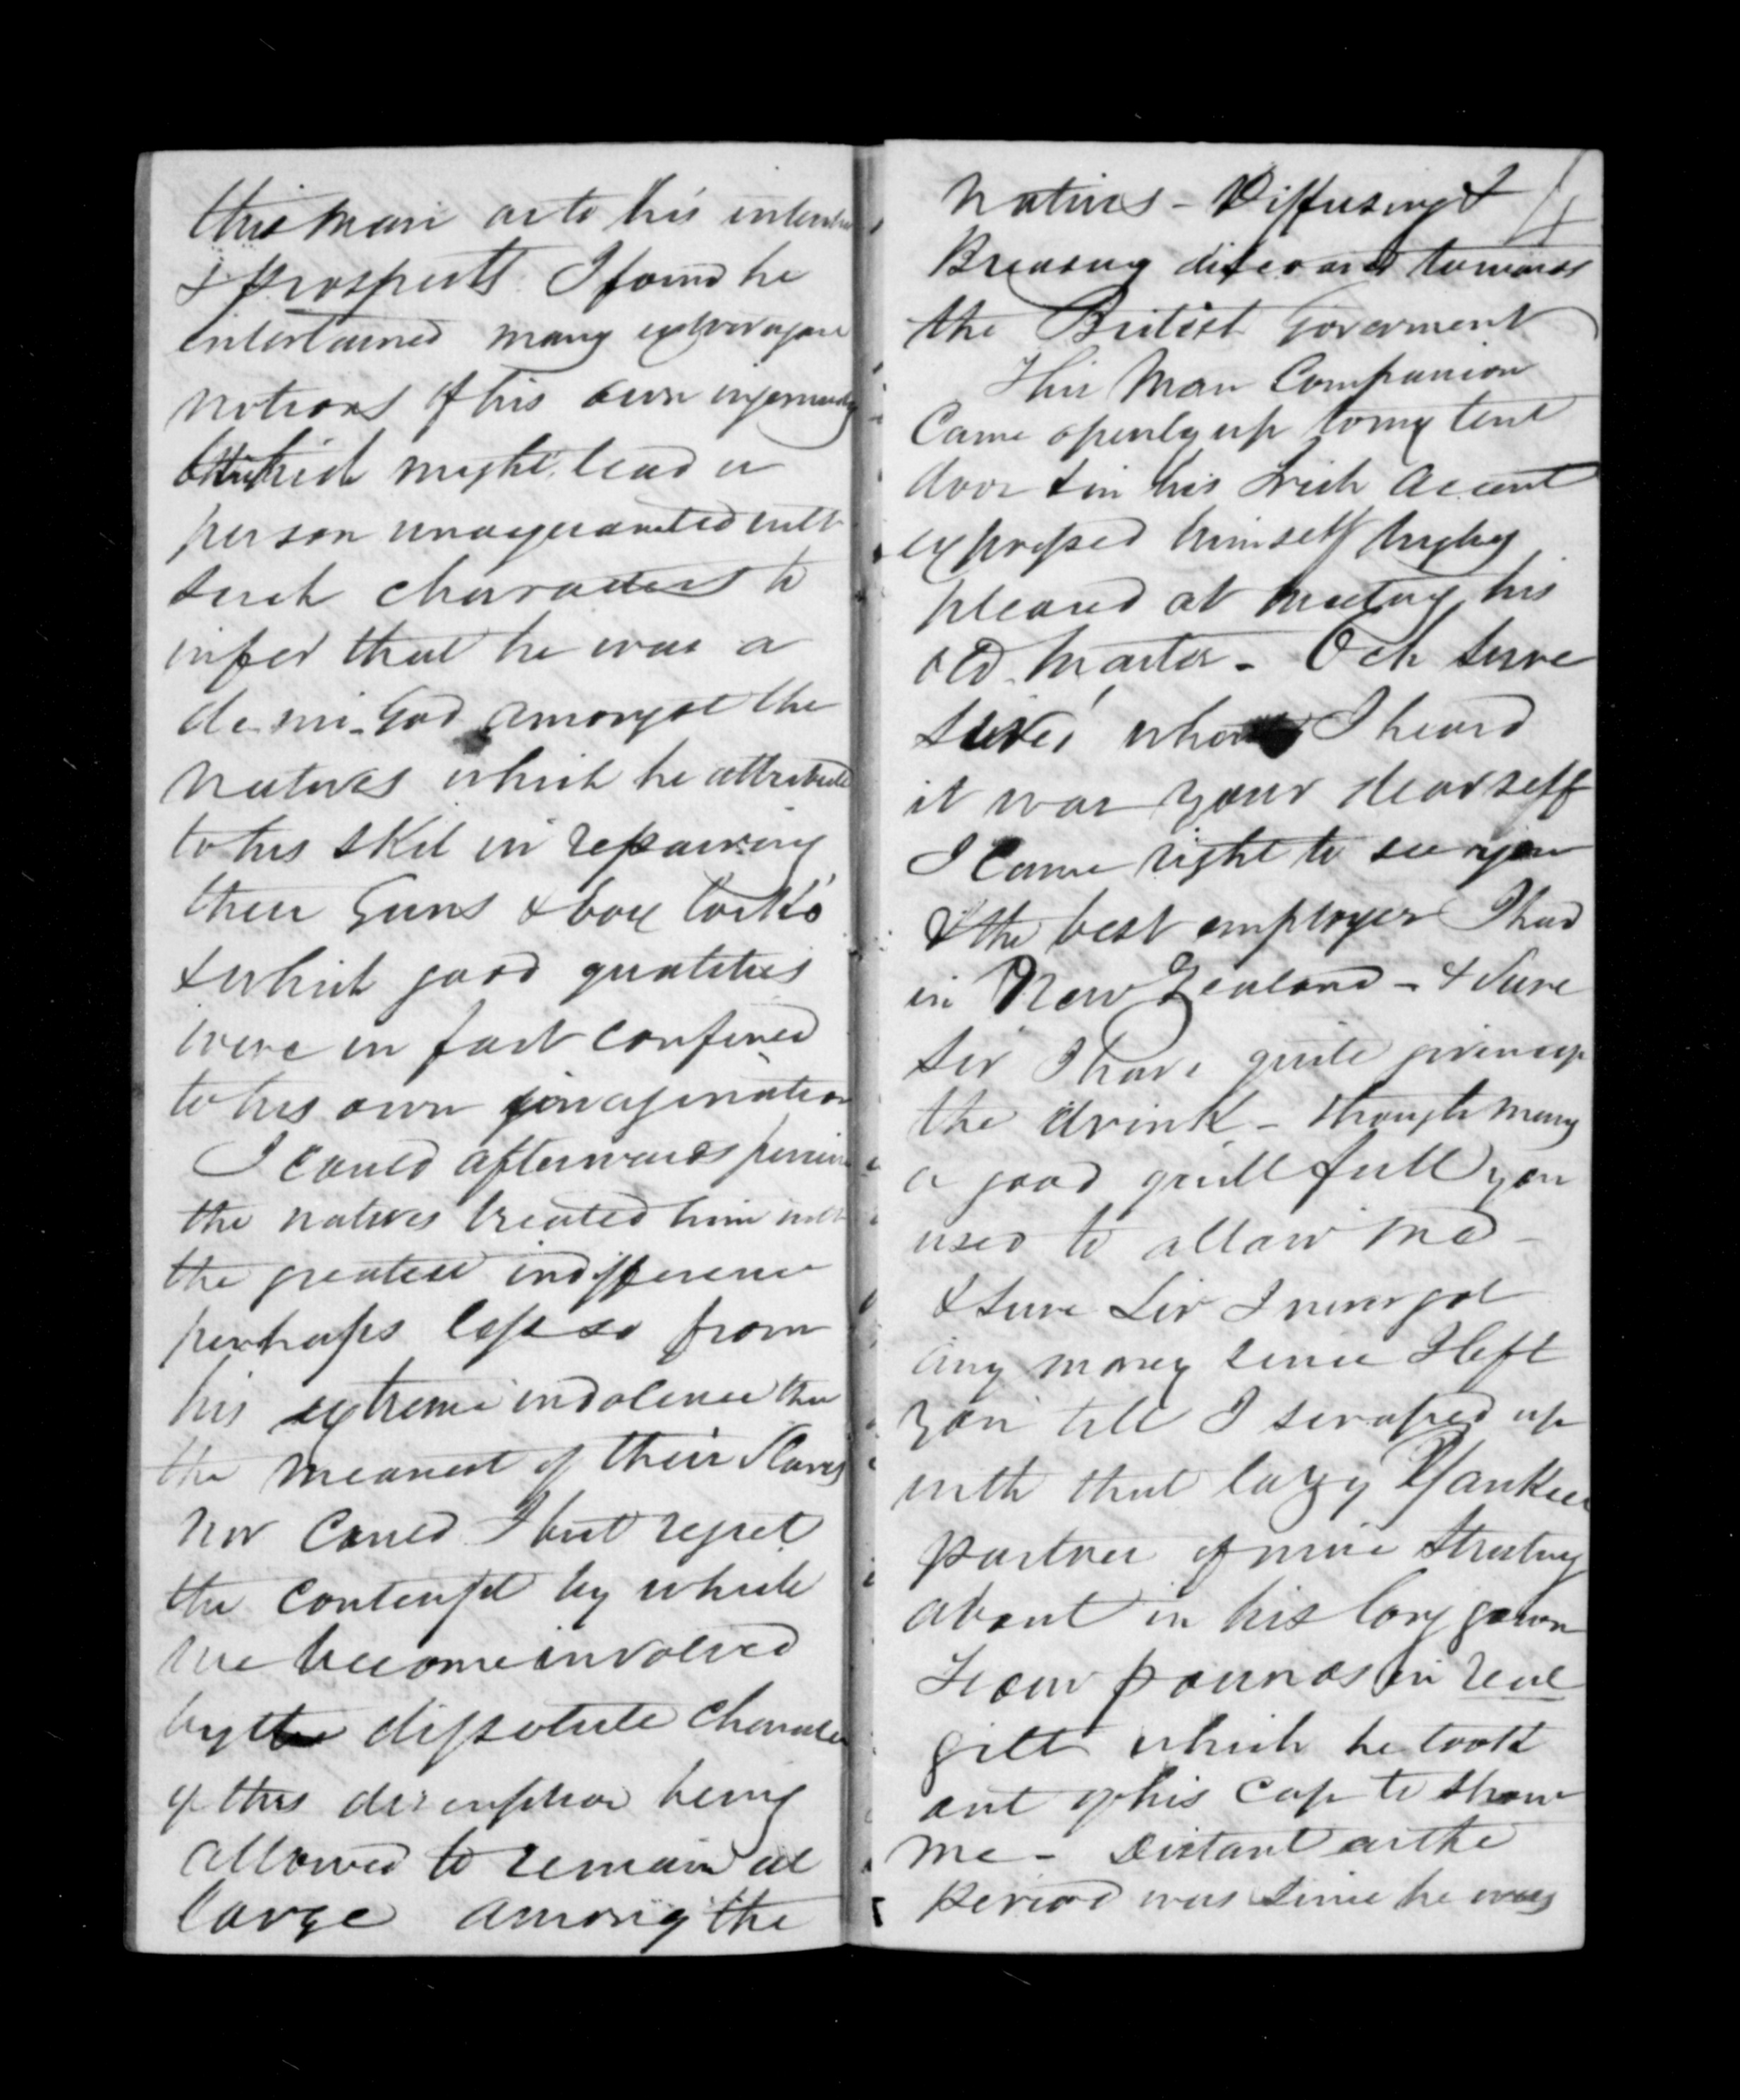 this man as to his intentio
& prospects. I found he
entertained many extravagan
notions of his own ingenuity
which might lead a
person unacquanted with
such characters to
infer that he was a
demi-God amongst the
natives which he attributed
to his skil in repairing
their Guns & box lock's
& which good qualities
were in fact confined
to his own imagination
I could afterwards perceive
the natives treated him with
the greatest indifference
perhaps less so from
his extreme indolence than
the meanest of their Slaves
nor could I but regret
the contempt by which
we become involved
by the dissolute character
of this discription being
allowed to remain at
large among the
4
Natives - Diffusing &
Breading discord towards
the British Goverment
This Man Companion
Came openly up to my tent
door & in his Irish accent
expressed himself highly
pleased at meeting his
old Master - Och sure
sure, when I heard
it was your dear self
I came right to see you
& the best employer I had
in New Zealand - & sure
sir I have quite given up
the drink - though many
a good quill full you
used to allow me -
& sure Sir I never got
any money since I left
you till I scraped up
with that lazy Yankee
partner of mine Struting
about in his long gown
Four pounds in real
gilt which he took
out of his Cap to show
me - Distant as the
period was since he was